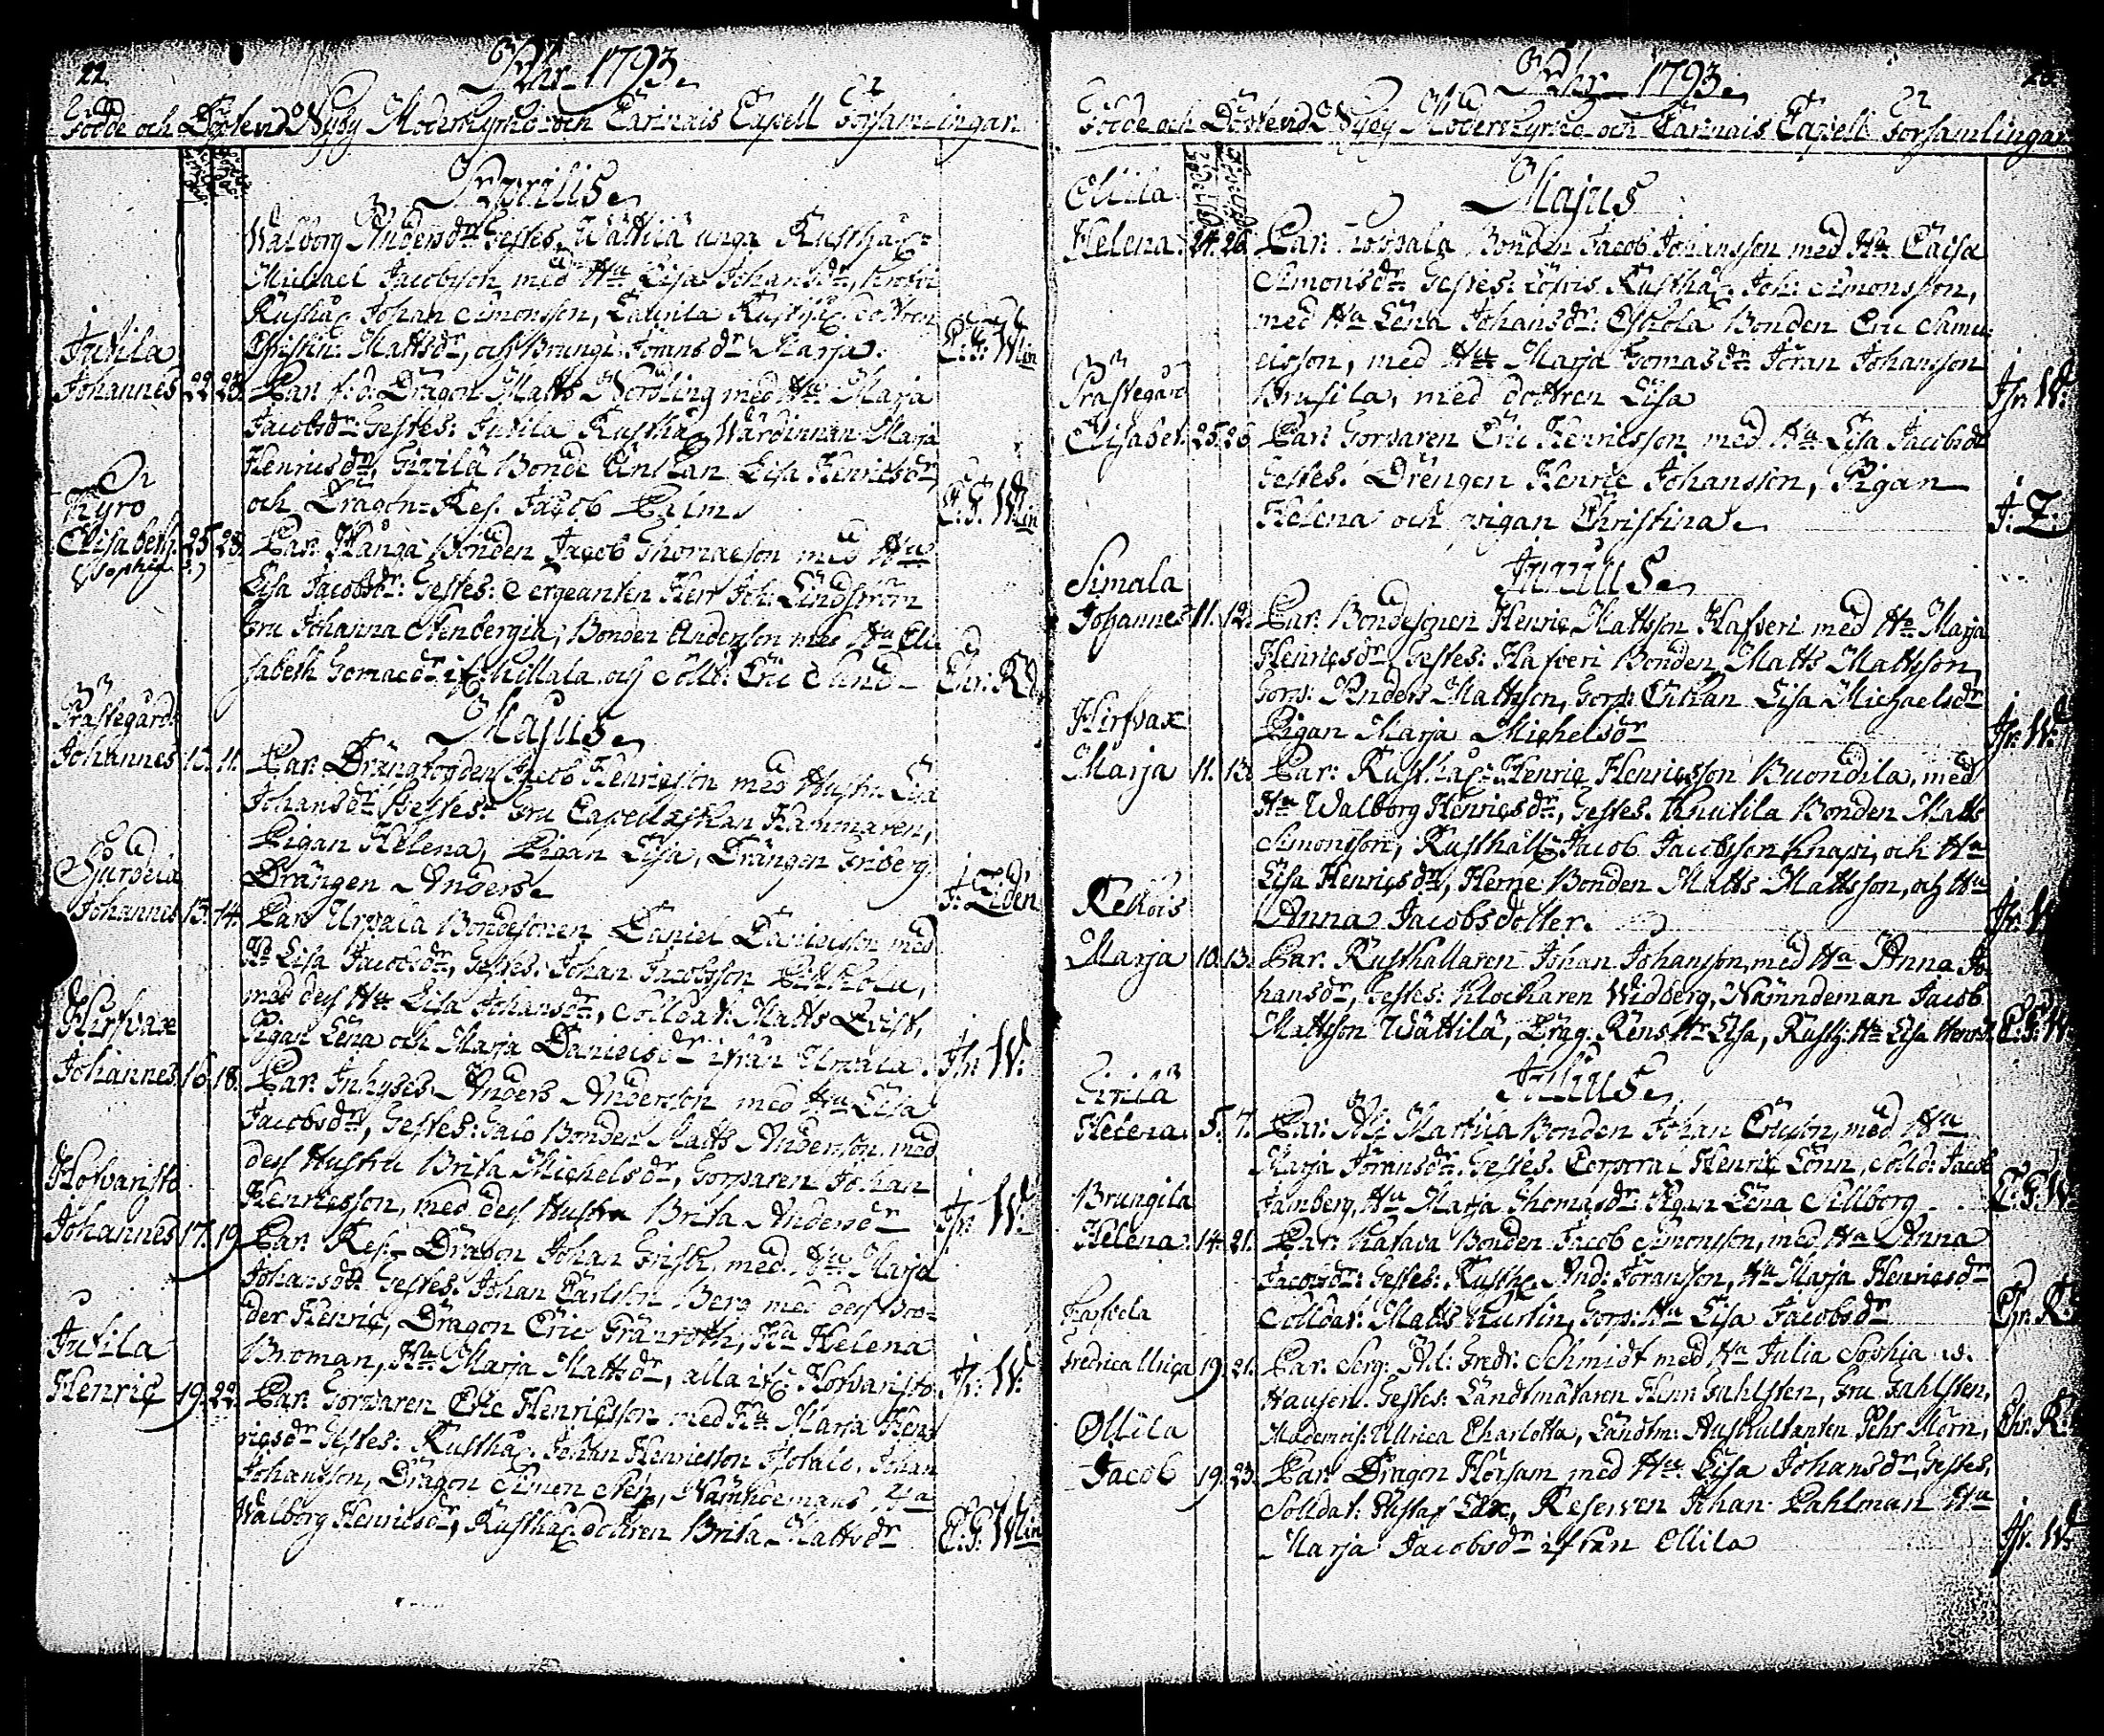 22.
Åhr 1793.
Födde och Döpte vid Nyby Moderkyrko och Carinais Capell Församlingar
Aprilis.
Walborg Andersdr Testes, Wättilä unga Rusthål:
Michael Jacobsson med Hu Lisa Johansdr,
Rusthål Johan Simonsson, Rusthål dottren
Christin: Mattsdr, och Brungi Jöransdr Marja. C:G: Win
Jutila
Johannes 22 23. Par: f.d. Dragon Matts Nordling med Hu Marja
Jacobsdr: Testes: Jutila Rusthål Wärdinnan Marja
Henricsdr, Bonde Enkan Lisa Henricsdr
och Dragon-Res. Jacob Palm. C:G: Win
Kyro
Elisabeth. 25. 28. Par. Kånga Bonden Jacob Thomasson med Hu
(Sophia)
Lisa Jacobsdr: Testes: Sergeanten Herr Joh: Lindström
Fru Johanna Stenbergia, Bonden Andersson med Hu Eli
sabeth Tomasdr if: Killala och Solld: Eric Sund
Majus.
Prästegård
Johannes 10. 11. Par: Drängfogden Jacob Henricsson med Hustru Lisa
Johansdr Testes: Fru Capellanskan Hammaren,
Pigan Helena, Pigan Lisa, Drängen Friberg.
Drängen Anders. J: Liden
Johannes 13. 14. Par: Urpala Bondesonen Daniel Danielsson med
Hu Lisa Jacobsdr, Testes: Johan Jacobsson Pikkola,
med dess Hu Lisa Johansdr, Solldat: Matts Qvist,
Pigan Lena och Marja Danielsdr ifrån Urpala. Jh: W:
Hirfvax
Johannes 16. 18. Par: Inhyses Anders Andersson med Hu Lisa
Jacobsdr, Testes: Talo Bonden Matts Andersson med
dess Hustru Brita Michelsdr, Torparen Johan
Henricsson, med dess Hustru Brita Andersdr Jh: W:
Hofvanisto
Johannes 17. 19. Par. Res. Dragon Johan Frisk, med Hu Marja
Johansdr Testes: Johan Carlsson Berg med dess Bro-
der Henric, Dragon Eric Granroth, Hu Helena
Broman, Hu Marja Mattsdr, alla if: Hofvanisto. Jh: W:
Jutila
Henric 19. 22. Par: Torparen Eric Henricsson med Hu Marja Hen
ricsdr Testes: Rusthål Johan Henricsson Isotalo, Johan
Johansson, Dragon Simon Sten, Nämndemans Hu
Walborg Henricsdr, Rusthål dottren Brita Mattsdr C:G: Win
Åhr 1793. 23.
Födde och Döpte vid Nyby Moderkyrko och Carinais Capell Församlingar
Majus
Ollila
Helena. 24. 26. Par: Bonden Jacob Johansson med Hu Caisa
Simonsdr: Testes: Rusthål Joh: Simonsson,
med Hu Lena Johansdr: Eskola Bonden Eric Samu-
elsson, med Hu Marja Tomasdr Jöran Johansson
Krusila, med dottren Lisa Jh: W:
Prästegård
Elisabet. 25. 26 Par: Torparen Eric Henricsson med Hu Lisa Jacobsdr
Testes. Drängen Henric Johansson, Pigan
Helena och pigan Christina. J: L:
Junius.
Simala
Johannes 11. 12. Par: Bondesonen Henric Mattsson Hafveri med Hu Marja
Henricsdr Testes: Hafveri Bonden Matts Mattsson,
Torp: Anders Mattsson, Torp: Enkan Lisa Michaelsdr
Pigan Marja Michelsdr Jh: W:
Hirfvax
Marja 11. 13. Par: Rusthål: Henric Henricsson Buondila, med
Hu Walborg Henricsdr, Testes. Knutila Bonden Matts
Simonsson, Rusthåll: Jacob Jacobsson Knapi, och Hu
Lisa Henricsdr, Herne Bonden Matts Mattsson, och Hu
Anna Jacobsdotter.
Rekois
Marja 10. 13. Par: Rusthållaren Johan Johansson, med Hu Anna Jo-
hansdr, Testes: Klockaren Widberg, Nämndeman Jacob
Mattsson Wättilä, Drag: Rens Hu Lisa, Rusth: Hu Lisa Henrsd: C:G: W:
Julius.
Helena. 5. 7. Par: Ali Mattila Bonden Johan Ericsson, med Hu
Marja Jöransdr. Testes. Corporal Henric Lönn, Solld: Jacob
Jamberg, Hu Marja Thomasdr Pigan Lena Sillborg C:G: W:
Brungila
Helena. 14. 21. Par: Katava Bonden Jacob Simonsson, med Hu Anna
Jacobsdr: Testes: Rusth: And: Jöransson, Hu Marja Henricsdr
Solldat: Matts Kurlin, Torp: Hu Lisa Jacobsdr
Fredrica Ulrica 19. 21. Par: Serg: Ad: Fredr: Schmidt med Hu Julia Sophia
Hausen. Testes: Landtmätaren Herr Gahlsten, Fru Gahlsten,
Mademois: Ullrica Charlotta, Landtm: Auskultanten Pehr Mörn,
Ollila
Jacob 19. 23. Par: Dragon Hörsam med Hu Lisa Johansdr, Testes,
Solldat: Gustaf Lax, Reserven Johan Pahlman Hu
Marja Jacobsdr ifrån Ollila Jh: W: